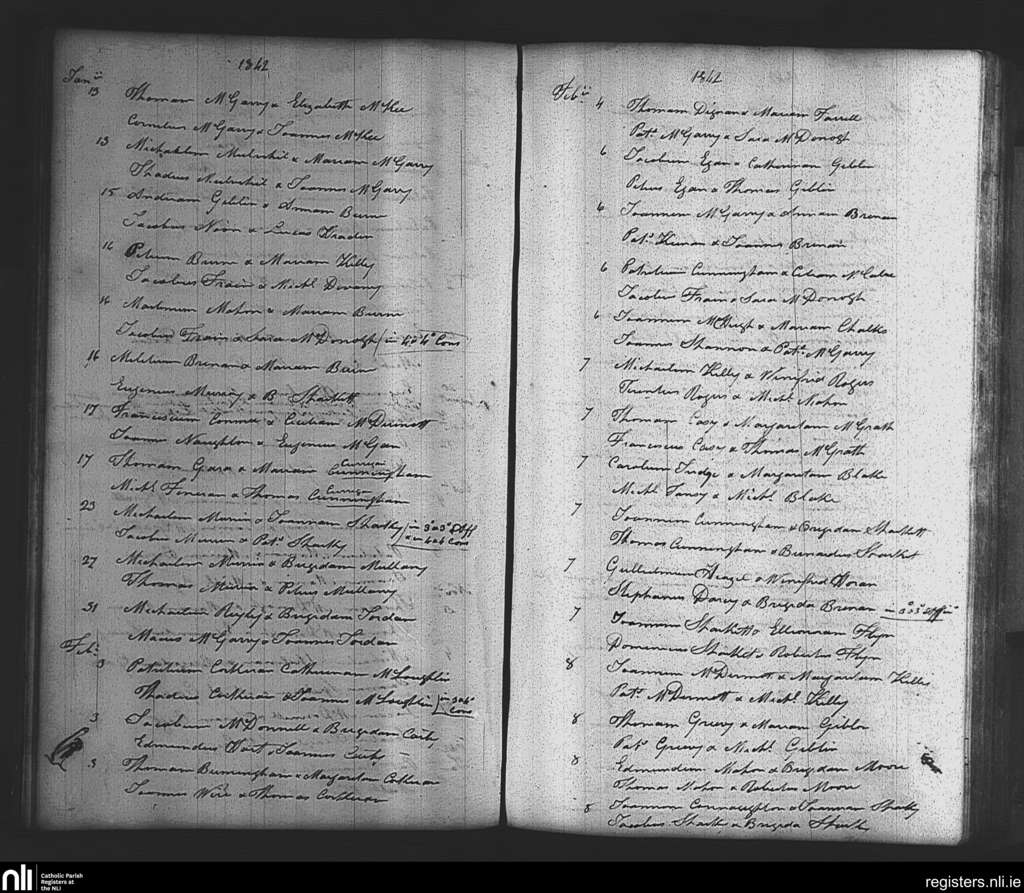 1842
Jan
13 Thomam McGarry & Elizabeth McKee
Cornelius McGarry & Joannes McKee
13 Michaelem Mulvihil & Mariam McGarry
Thadeus Mulvihil & Joannes McGarry
15 Andream Giblin & Annam Beirn
Jacobus Noon & Lucas Hraden
16 Petrum Beirn & Mariam Kelly
Jacobus Frain & Michl Devany
16 Martinum Mahon & Mariam Beirn
Jacobus Frain & Sara McDonogh / in 4 a 4 Cons
16 Brenan & Mariam Beirn
Eugenius Murry & B Sharkett
17 Franciscum & Ceciliam McDermott
Joannes Naughton & Eugenius McGan
17 Thomam Gara & Mariam Cunningham
Michl & Thomas Cunningham
23 Michaelem & Joannam Sharky / in 3 a 3 Aff
Jacobus & Patk Sharky & in 4 a 4 Cons
27 Michaelem & Brigidam Mullany
Thomas & Petrus Mullany
31 Michaelem & Brigidam Jordan
McGarry & Joannes Jordan
Feb
3 Patricium Corkran Catherinam McLoughlin
Thadeus Corkran & Joannes McLoughlin / Cons
3 Jacobum McDonnell & Brigidam
Edmundus & Joannes
3 Thomam Birmingham & Margaritam Corkran
Joannes & Thomas Corkran
1842
Feb
4 Thomam Dignan & Mariam Farrell
Patk McGarry & Sara McDonogh
6 Jacobum Egan & Catherinam Giblin
Petrus Egan & Thomas Giblin
6 Joannem McGarry & Annam Brenan
Patk Keenan & Joannes Brenan
6 Patricium Cunningham & McCabe
Jacobus Frain & Sara McDonogh
6 Joannem McHugh & Mariam Chalks
Joannes Shannon & Patk McGarry
7 Michaelem Kelly & Winifrid Rogers
Rogers & Michl Mahon
7 Thomam Casy & Margaritam McGrath
Franciscus Casy & Thomas McGrath
7 Carolum & Margaritam Blake
Michl & Michl Blake
7 Joannem Cunningham & Brigidam Sharkett
Thomas Cunningham & Bernardus Sharket
7 Gulielmum & Winifrid Horan
Stephanus Darcy & Brigida Brenan in 3 a 3
7 Joannem Sharkett & Elleonam Flyn
Domenicus Sharket & Robertus Flyn
8 Joannem McDermott & Margaritam
Patk McDermott & Michl Kelly
8 Thomam Greevy & Mariam Giblin
Patk Greevy & Michl Giblin
8 Edmundum Mahon & Brigidam Moore
Thomas Mahon & Robertus Moore
8 Joannem Connaughton & Joannam Sharky
Jacobus Sharky & Brigida
nli
Catholic Parish
Registers at
the NLI
registers.nli.ie